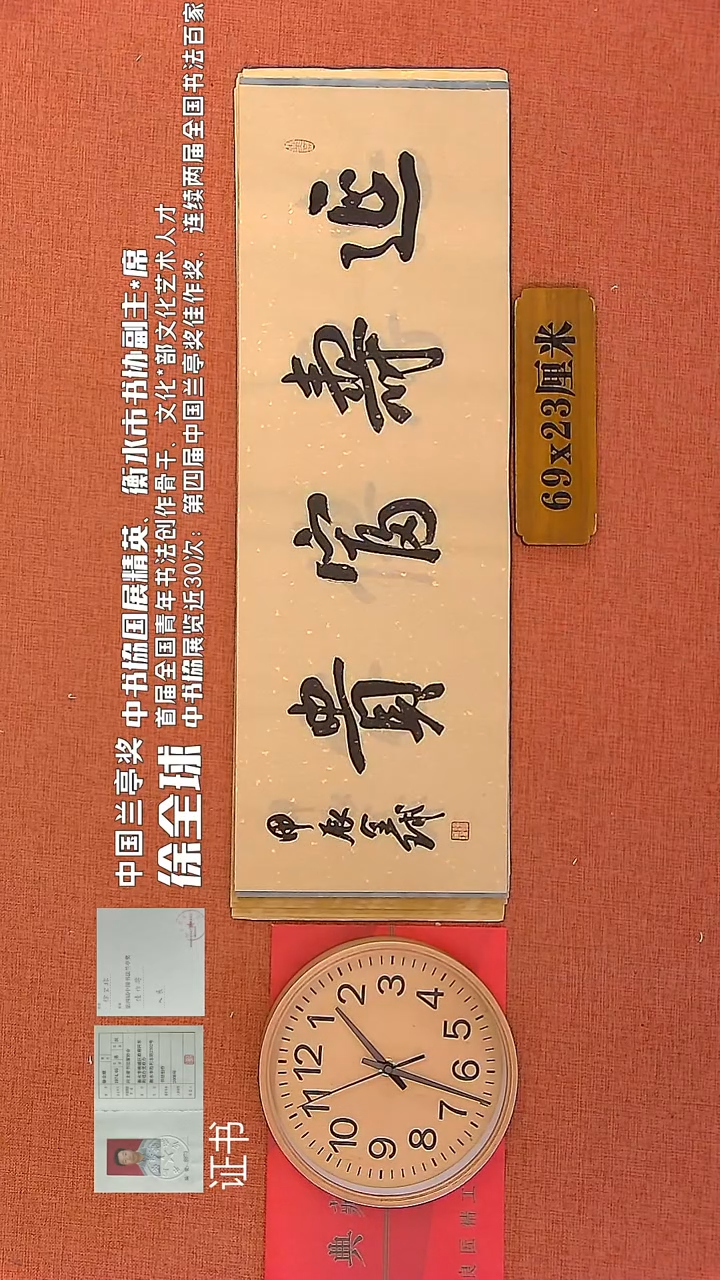 中国兰亭奖 中书協国展精英、衡水市书协副主*席
徐全球
首届全国青年书法创作骨干、文化*部文化艺术人才
中书協展览近30次：第四届中国兰亭奖佳作奖、连续两届全国书法百家
证书
延壽富貴
甲辰全球
69x23厘米
12 1 2 3 4 5 6 7 8 9 10 11
典
良匠精工